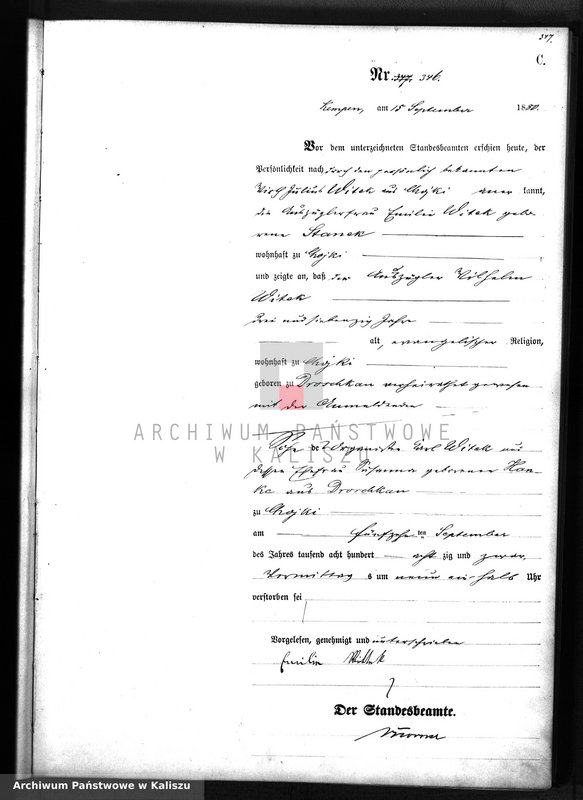 347.
C.
Nr. 377, 346.
Kempen, am 15 September 1880.
Vor dem unterzeichneten Standesbeamten erschien heute, der
Persönlichkeit nach durch den persönlich bekannten
Wirth Julius Witek aus Chojki aner kannt,
die Auszüglerfrau Emilie Witek gebo-
rene Stanek
wohnhaft zu Chojki
und zeigte an, daß der Auszügler Wilhelm
Witek
drei und siebenzig Jahre
alt, evangelischer Religion,
wohnhaft zu Chojki
geboren zu Droschkau verheirathet gewesen
mit der Anmeldenden
ARCHIWUM PAŃSTWOWE
W KALISZU
Sohn des Organisten Carl Witek und
dessen Ehefrau Susanna geborenen Han-
ke aus Droschkau
zu Chojki
am fünfzehn ten September
des Jahres tausend acht hundert acht zig und zwar
Vormittag s um neun ein halb Uhr
verstorben sei
Vorgelesen, genehmigt und unterschrieben
Emilie Witek
Der Standesbeamte.
Archiwum Państwowe w Kaliszu